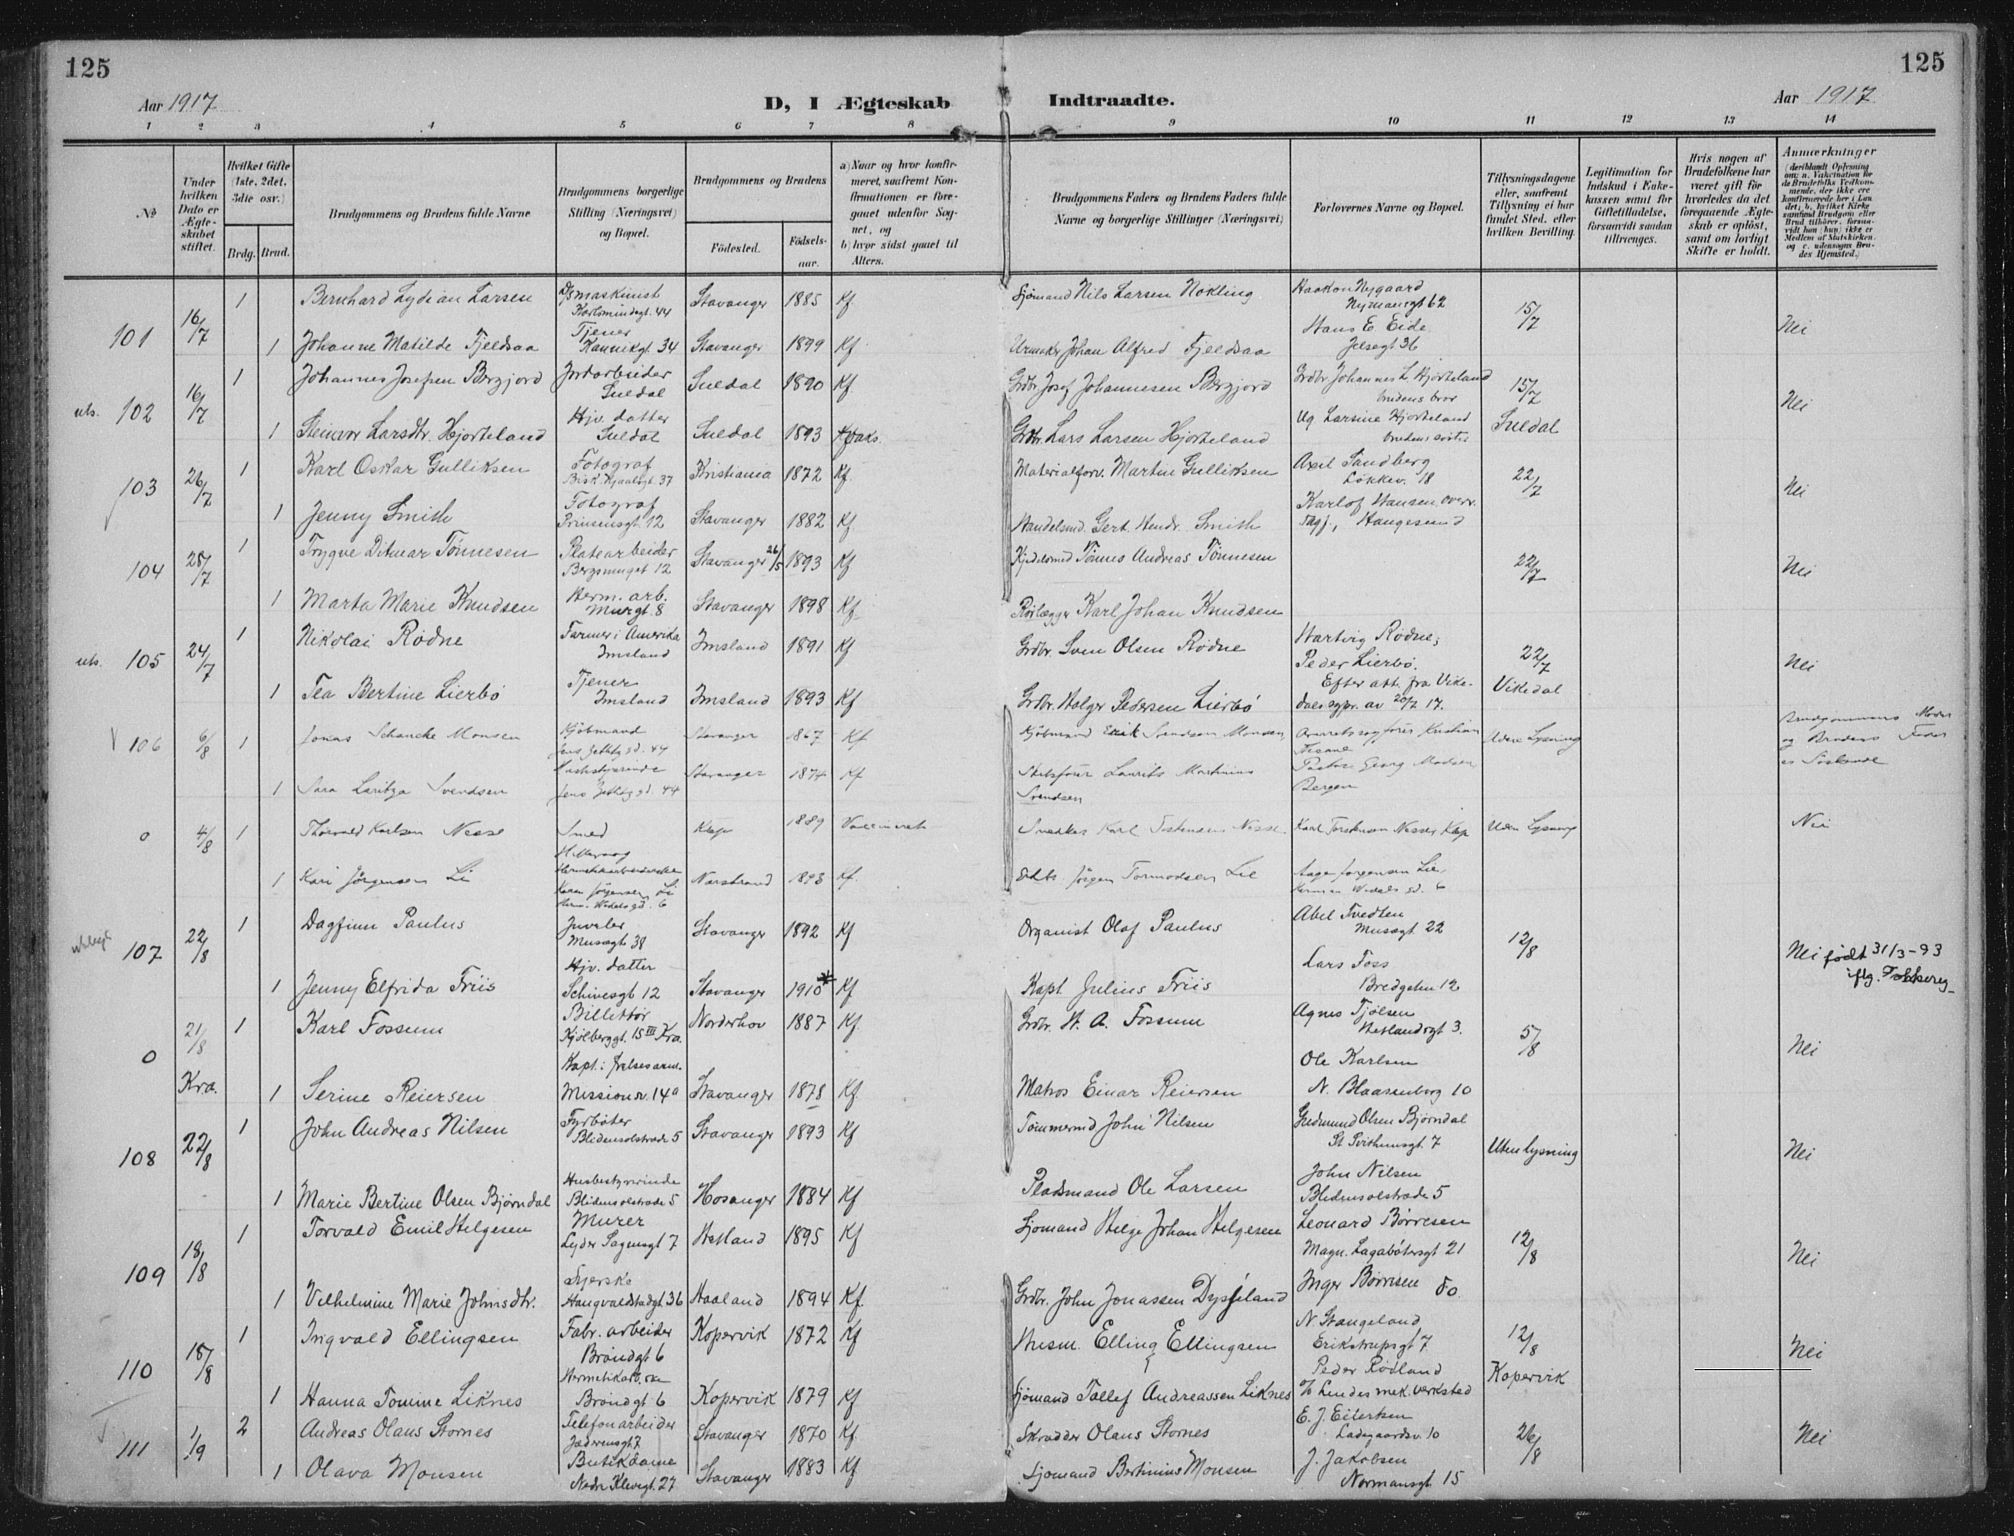 125
125
Aar 1917
D, I Ægteskab Indtraadte.
Aar 1917
1 2 3 4 5 6 7 8 9 10 11 12 13 14
No
Under hvilken Dato er Ægteskabet stiftet.
Hvilket Gifte (1ste, 2det, 3die osv.)
Brdg. Brud.
Brudgommens og Brudens fulde Navne
Brudgommens borgerlige Stilling (Næringsvei) og Bopæl.
Brudgommens og Brudens
Fødested. Fødselsaar.
a) Naar og hvor konfirmeret, saafremt Konfirmationen er foregaaet udenfor Sognet, og
b) hvor sidst gaaet til Alters.
Brudgommens Faders og Brudens Faders fulde Navne og borgerlige Stillinger (Næringsvei)
Forlovernes Navne og Bopæl.
Tillysningsdagene eller, saafremt Tillysning ei har fundet Sted, efter hvilken Bevilling.
Legitimation for Indskud i Enkekassen samt for Giftetilladelse, forsaavidt saadan tiltrænges.
Hvis nogen af Brudefolkene har været gift før hvorledes da det foregaaende Ægteskab er opløst, samt om lovligt Skifte er holdt.
Anmærkninger
(deriblandt Oplysning om: a. Vakcination for de Brudefolks Vedkommende, der ikke ere konfirmerede her i Landet; b. hvilket Kirkesamfund Brudgom eller Brud tilhører, forsaavidt han (hun) ikke er Medlem af Statskirken, og c. udensogns Brudes Hjemsted.)
101 16/7 1 Bernhard Lydian Larsen D/S maskinist Karlsmindegt. 44 Stavanger 1885 Kf Sjømand Nils Larsen Nokling Haakon Nygaard Nymansgt 62 15/7
1 Johanne Matilde Fjeldsaa Tjener Kannikgt. 34 Stavanger 1899 Kf Urmaker Johan Alfred Fjeldsaa Hans E. Eide Jelsagt 36 Nei
uts. 102 16/7 1 Johannes Josefsen Bergjord Jordarbeider Suldal Suldal 1890 Kf Grdbr Josef Johannesen Bergjord Grdbr Johannes L. Hjorteland brudens bror 15/7
1 Steinvor Larsdtr. Hjorteland Hjv. datter Suldal Suldal 1893 Kf Grdbr. Lars Larsen Hjorteland Ug Larsine Hjorteland brudens søster Suldal Nei
103 26/7 1 Karl Oskar Gulliksen Fotograf Kristiania 1872 Kf. Materialforv. Martin Gulliksen Axel Sandberg Løkkev. 18 22/7
1 Jenny Smith Fotograf Prinsensgt 12 Stavanger 1882 Kf Handelsmd. Gert. Hendr. Smith Karlof Hansen Haugesund Nei
104 28/7 1 Trygve Ditmar Tønnesen Platearbeider Stavanger 26/5 1893 Kf Kjedelsmed Tønnes Andreas Tønnesen 22/7
1 Marta Marie Knudsen Herm. arb. Murgt 8 Stavanger 1898 Kf Rørlægger Karl Johan Knudsen Nei
uts. 105 24/7 1 Nikolai Rødne Farmer i Amerika Imsland Imsland 1891 Kf Grdbr. Sven Olsen Rødne Hartvig Rødne; 22/7
1 Tea Bertine Lierbø Tjener Imsland Imsland 1893 Kf Grdbr. Holger Pedersen Lierbø Peder Lierbø. Efter att. fra Vikedals sgpr. av 20/7 17. Vikedal Nei
106 6/8 1 Jonas Schancke Monsen Kjøbmand Stavanger 1867 Kf Kjøbmand Erik Svendsen Monsen Overretssagfører Kristian Uden Lysning Brudgommens Moder og Brudens Fader er Søskende
1 Sara Laritza Svendsen Husbestyrerinde Stavanger 1874 Kf Skibsfører Laurits Martinius Svendsen Pastor Georg Madsen Bergen
0 4/8 1 Thorvald Karlsen Nesse Smed Klep 1889 Smedker Karl Torstensen Nesse Karl Torstensen Nesse, Klep Uden Lysning Nei
1 Kari Jørgensen Li Narstrand 1893 Kf. Jørgen Tormodsen Lie Aage Jørgensen Lie
107 22/8 1 Dagfinn Paulus Juveler Musægt 38 Stavanger 1892 Kf Organist Olaf Paulus Abel Tvedten Musægt 22 12/8
1 Jenny Elfrida Friis Hjv. datter Schivesgt 12 Stavanger 1910* Kf Kapt. Julius Friis Lars Foss Bredgaten 12 Nei født 31/3-93 iflg. Folkereg
0 21/8 Kra. 1 Karl Fossum Billettør Kjølberggt. 15 III Kra. Norderhov 1887 Kf. Grdbr. H. A. Fossum Agnes Tjølsen Hetlandsgt 3. 5/8
1 Serine Reiersen Kapt. i frelsesarm. Missionsv. 14a Stavanger 1878 Kf Matros Einar Reiersen Ole Karlsen N. Blaasenborg 10 Nei
108 22/8 1 John Andreas Nilsen Fyrbøter Blidensolstræde 5 Stavanger 1893 Kf Tømmermd John Nilsen Gudmund Olsen Bjørndal St. Svithunsgt. 7 Uten lysning
1 Marie Bertine Olsen Bjørndal Husbestyrerinde Blidensolstræde 5 Hosanger 1884 Kf Pladsmand Ole Larsen John Nilsen Blidensolstræde 5 Nei
109 18/8 1 Torvald Emil Helgesen Murer Lyder Sagensgt 7 Hetland 1895 Kf Sjømand Helge Johan Helgesen Leonard Børresen Magn. Lagabøtersgt 21 12/8
1 Vilhelmine Marie Johnsdtr. Syerske Haugvaldstadgt. 36 Haaland 1894 Kf. Grdbr. John Jonassen Dysjeland Inger Børresen Do. Nei
110 18/8 1 Ingvald Ellingsen Fabr. arbeider Brøndgt 6 Kopervik 1872 Kf Husm. Elling Ellingsen N Stangeland Erikstrupsgt 7 12/8
1 Hanna Tomine Liknes Hermetikarb.ske Brøndgt 6 Kopervik 1879 Kf Sjømand Tollef Andreassen Liknes Peder Rødland Kopervik Nei
111 1/9 2 Andreas Olaus Stornes Telefonarbeider Jæderensgt 7 Stavanger 1870 Kf. Skrædder Olaus Stornes E. J. Eilertsen Ladegaardsv. 10 26/8
1 Olava Monsen Butikdame Nedre Klevegt. 27 Stavanger 1883 Kf Sjømand Bertinius Monsen J. Jakobsen Normansgt 15 Nei